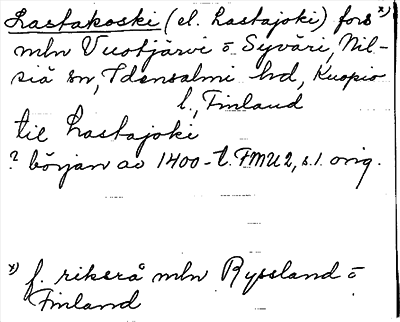 Lastakoski (el. Lastajoki) fors x)
mln Vuotjärvi o Syväri, Nil-
siä sn, Idensalmi hd, Kuopio
l., Finland
till Lastajoki
? början av 1400-t. FMU 2, s. 1. orig.
x) f. riksrå mln Ryssland o
Finland